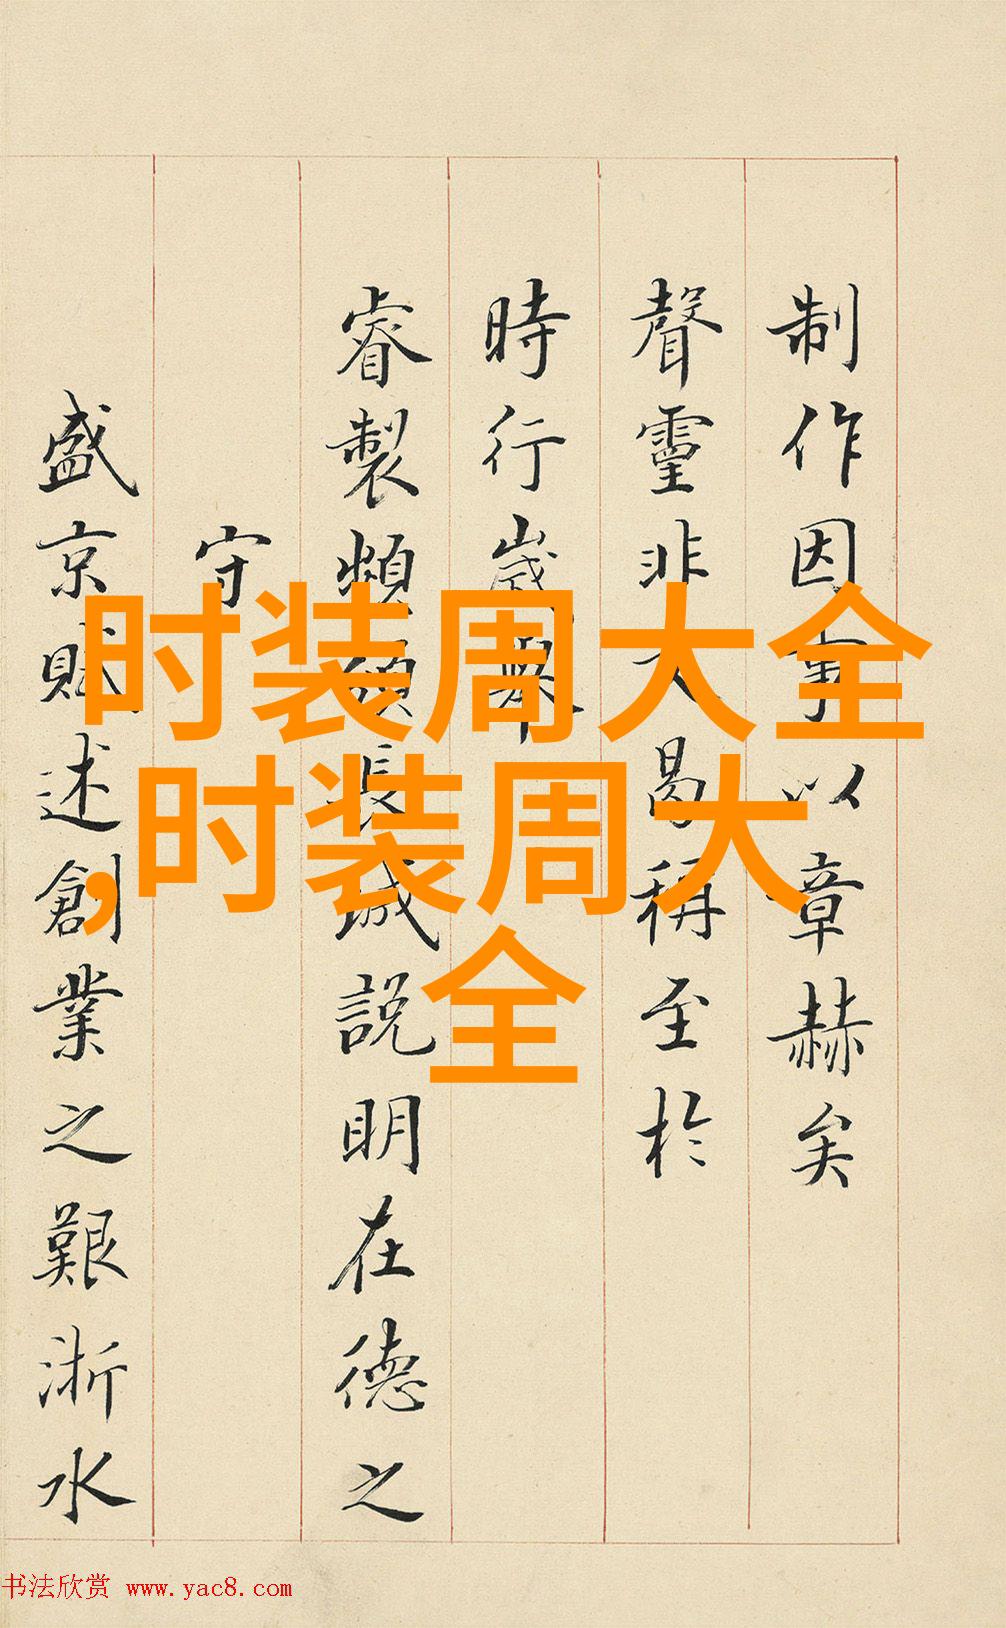 制作因事以章赫矣
聲靈非人曷稱至於
時行歲舉
睿製頻頒長城說明在德之
守
盛京賦述創業之艱浙水
时装周大全
,时装周大
全
书法欣赏 www.yac8.com